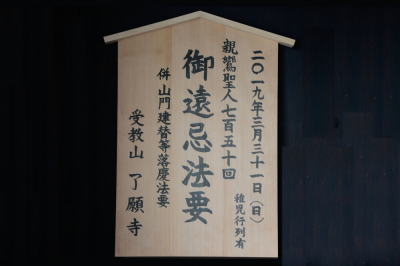 二〇一九年三月三十一日（日）
稚児行列有
親鸞聖人七百五十回
御遠忌法要
併 山門建替等落慶法要
受教山 了願寺